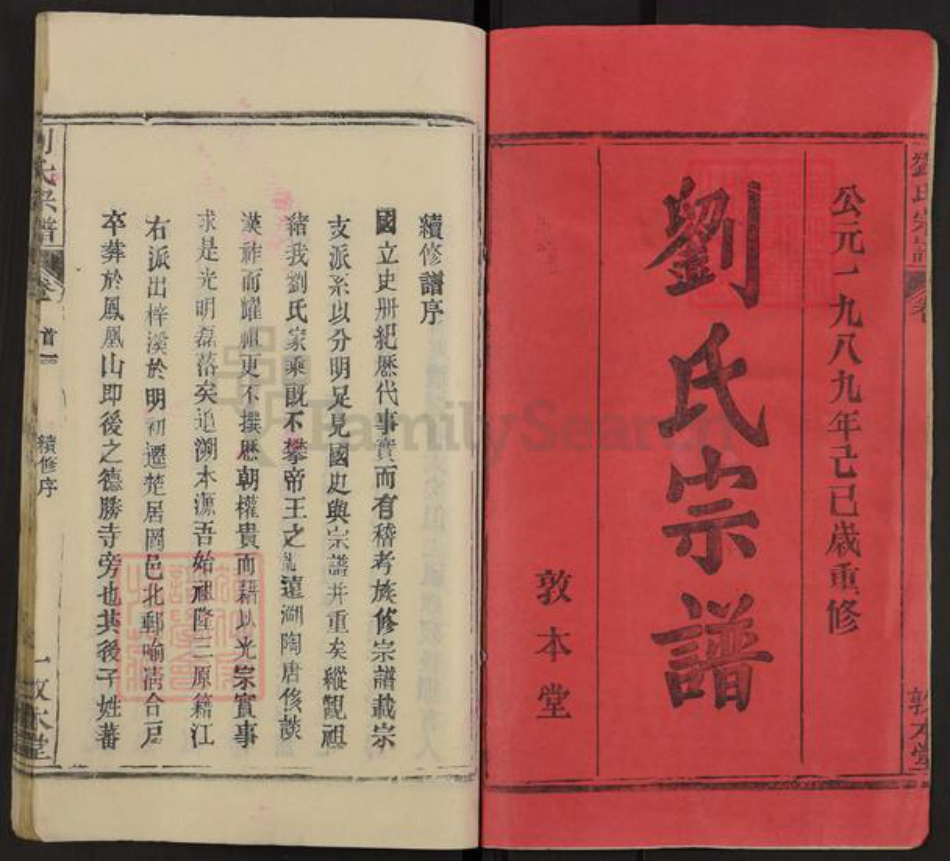 公元一九八九年己巳歳重修
劉氏宗譜
敦本堂
劉氏宗譜
敦本堂
續修譜序
國立史册紀歷代事實而有稽考族修宗譜載宗
支派系以分明足見國史與宗譜并重矣縱觀祖
緒我劉氏家乘既不攀帝王之遠溯陶唐侈談
漢祚而耀祖更不撰歷朝權貴而藉以光宗實事
求是光明磊落矣追溯本源吾始祖隆三原籍江
右派出梓溪於明初遷楚居岡邑北鄉
卒葬於鳳凰山即後之德勝寺旁也其後子姓蕃
氏宗譜
卷首一
續修序
敦本堂
FamilySearch